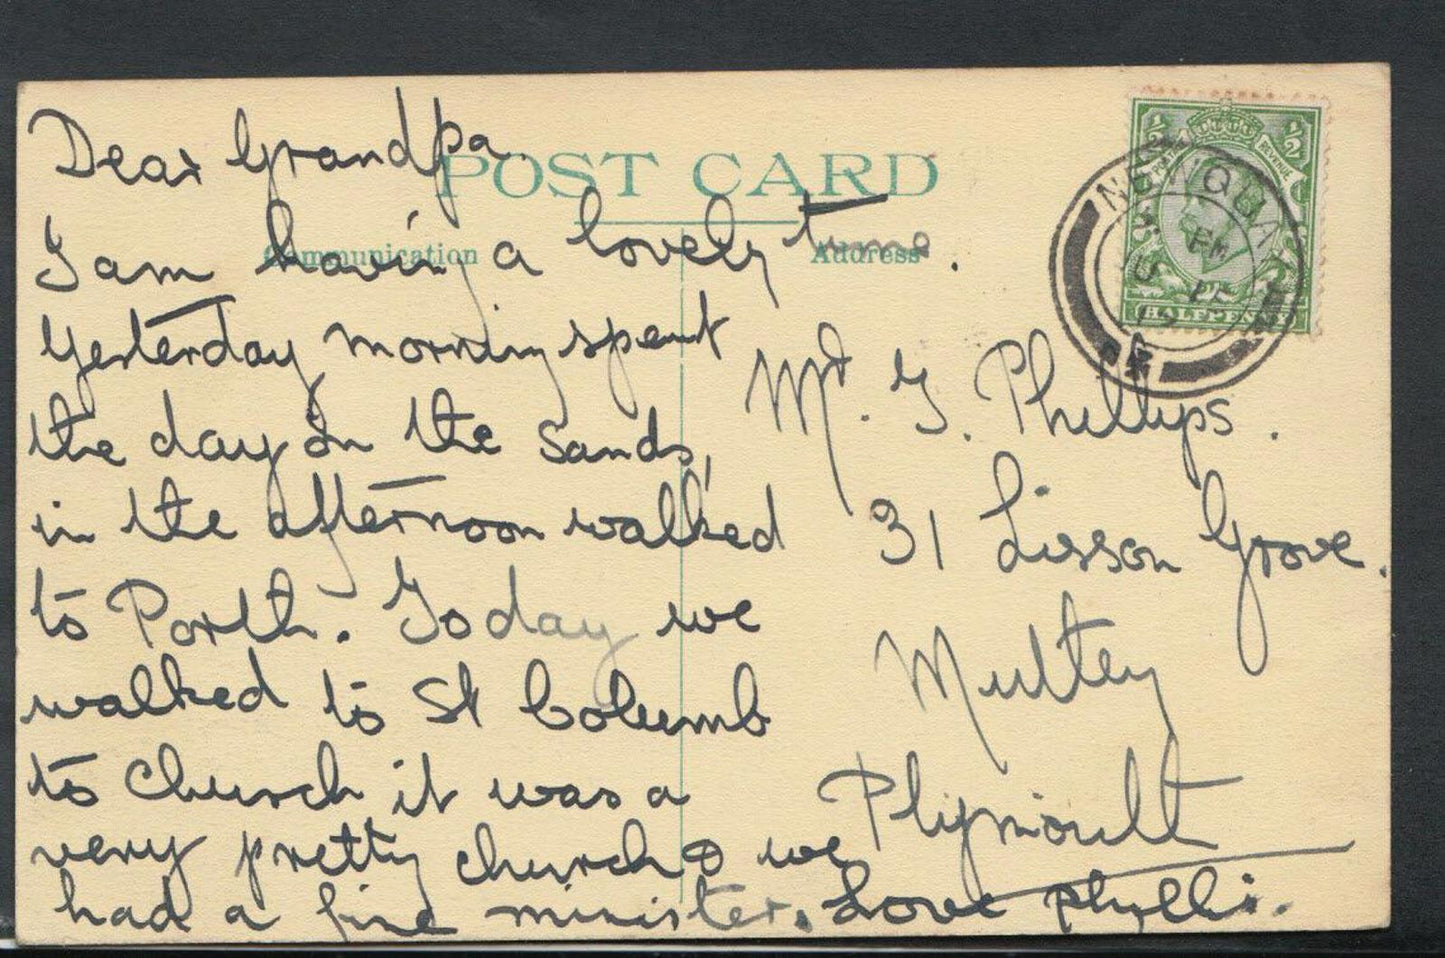 Dear Grandpa.
POST CARD
I am having a lovely time.
Communication
Address
Yesterday morning spent
the day on the sands,
in the afternoon walked
to Porth. Today we
walked to St Columb
to Church it was a
very pretty church & we
had a fine minister. Love Phyllis.
Mr. G. Phillips.
31 Lisson Grove.
Multey
Plymouth
NEWQUAY
PM
HALFPENNY
½ POSTAGE REVENUE ½